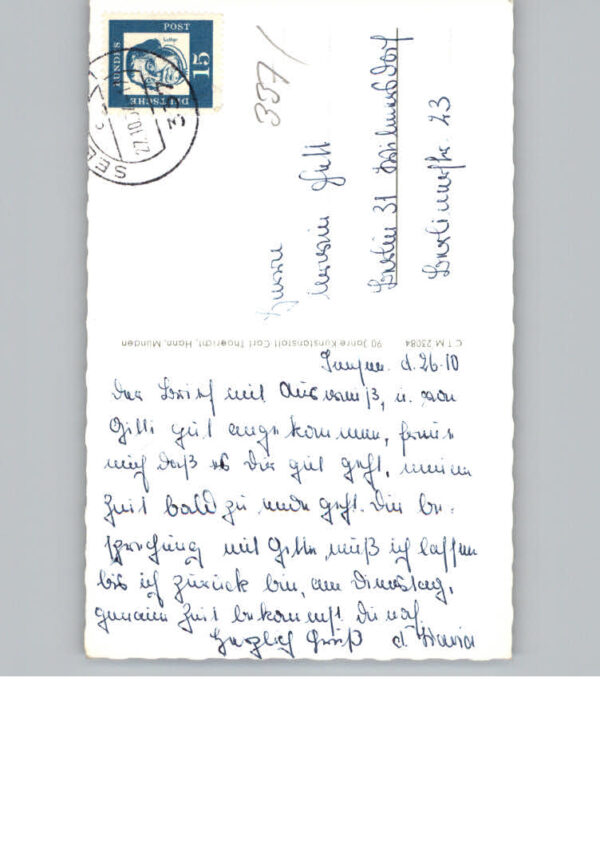 DEUTSCHE
BUNDES
POST
15
Luther
SEE
27.10.
337/
Herrn
Berlin 31 Wilmersdorf
Berlinerstr. 23
C T M 23084 90 Jahre Kunstanstalt Carl Thoericht, Hann. Münden
d. 26.10
Der Brief mit Ausweiß, u. von
Gitti gut angekommen, freue
mich daß es Dir gut geht, meine
Zeit bald zu ende geht. Die be-
sprechung mit Gitti, muß ich lassen
bis ich zurück bin, am Dienstag,
genaue Zeit bekommst Du noch
Herzlich Gruß d.